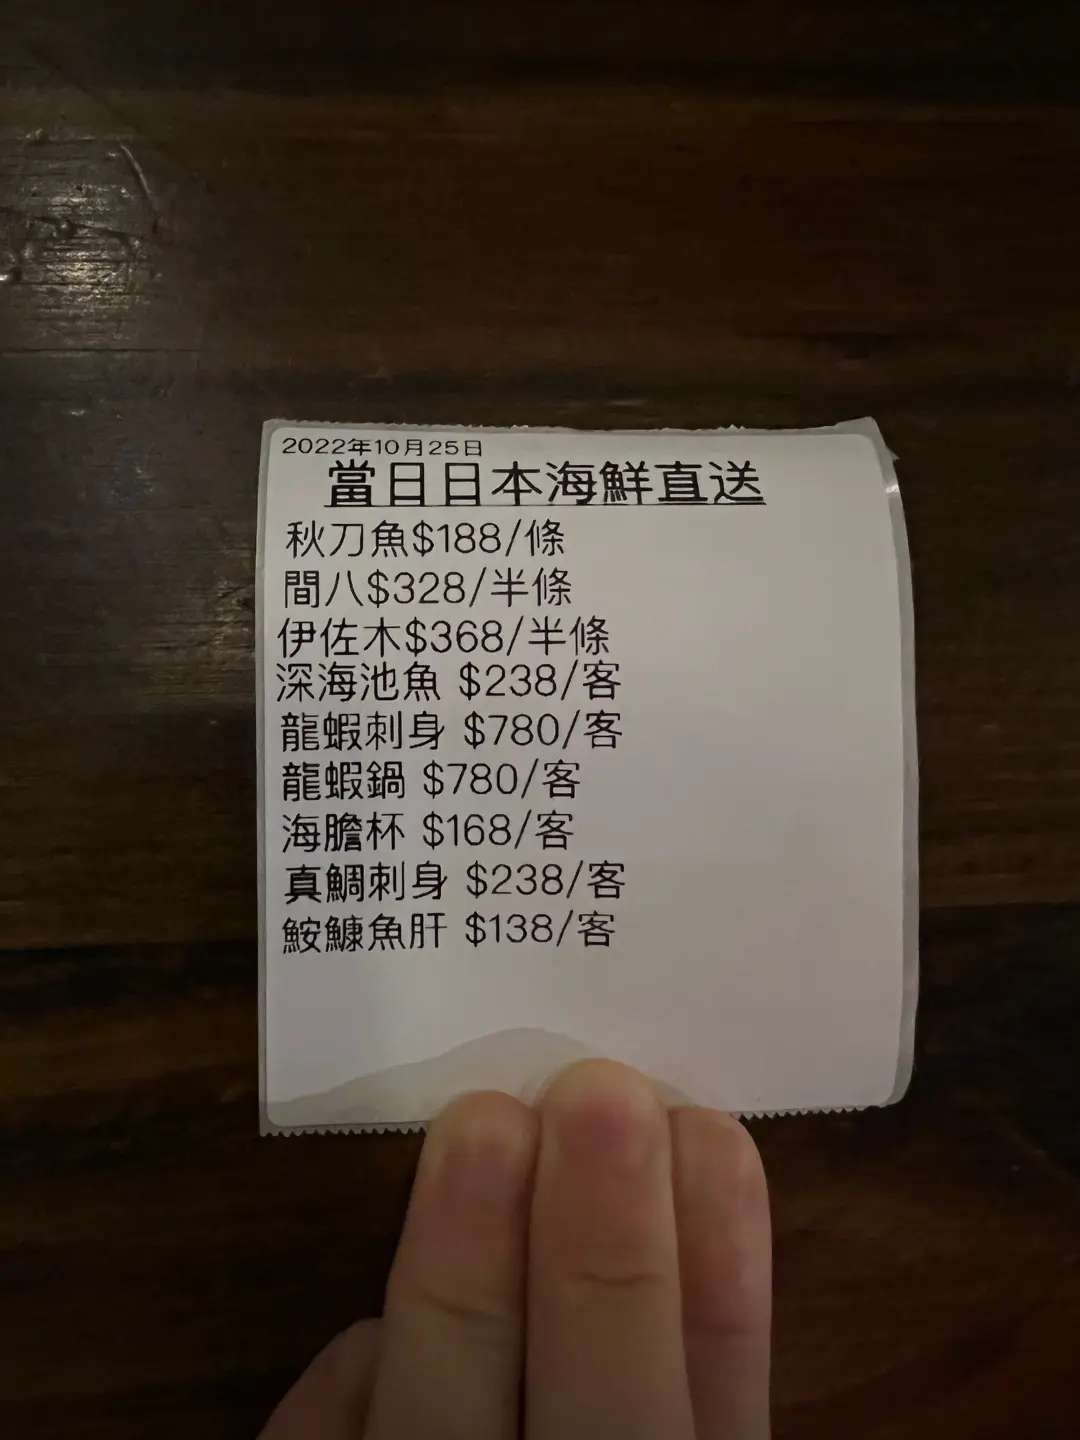 2022年10月25日
當日日本海鮮直送
秋刀魚$188/條
間八$328/半條
伊佐木$368/半條
深海池魚 $238/客
龍蝦刺身 $780/客
龍蝦鍋 $780/客
海膽杯 $168/客
真鯛刺身 $238/客
鮟鱇魚肝 $138/客